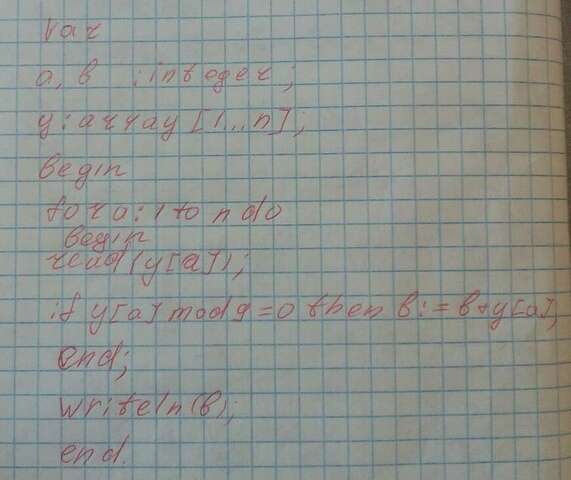 var
a, b : integer;
y: array [1...n];
begin
for a: 1 to n do
begin
read(y[a]);
if y[a] mod 9=0 then b:=b+y[a];
end;
writeln(b);
end.